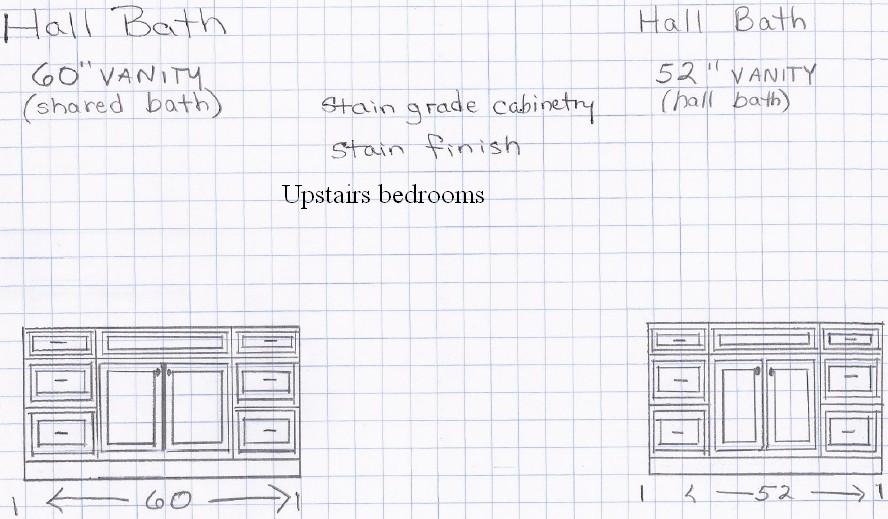 Hall Bath
60" VANITY
(shared bath)
Stain grade cabinetry
Stain finish
Upstairs bedrooms
Hall Bath
52" VANITY
(hall bath)
60
52